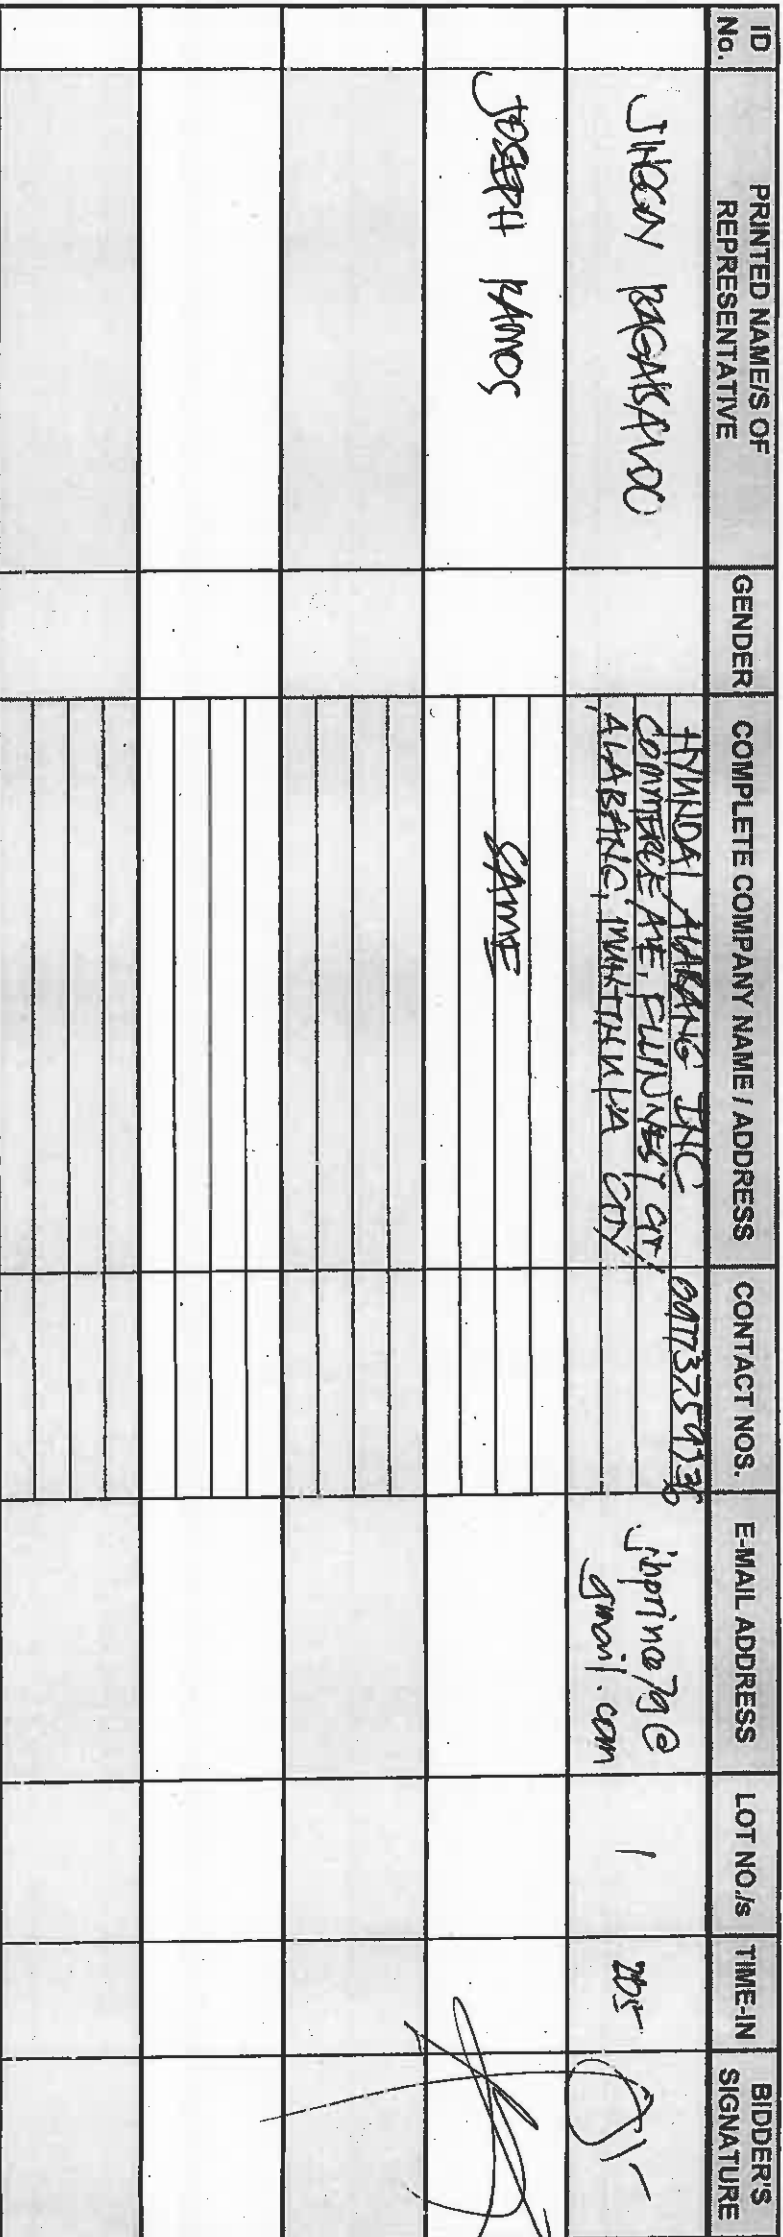 ID No.
PRINTED NAME/S OF REPRESENTATIVE
GENDER
COMPLETE COMPANY NAME / ADDRESS
CONTACT NOS.
E-MAIL ADDRESS
LOT NO./s
TIME-IN
BIDDER'S SIGNATURE
HYUNDAI ALABANG INC
COMMERCE AVE, FILINVEST CITY,
ALABANG, MUNTINLUPA CITY
gmail.com
1
JOSEPH RAMOS
SAME